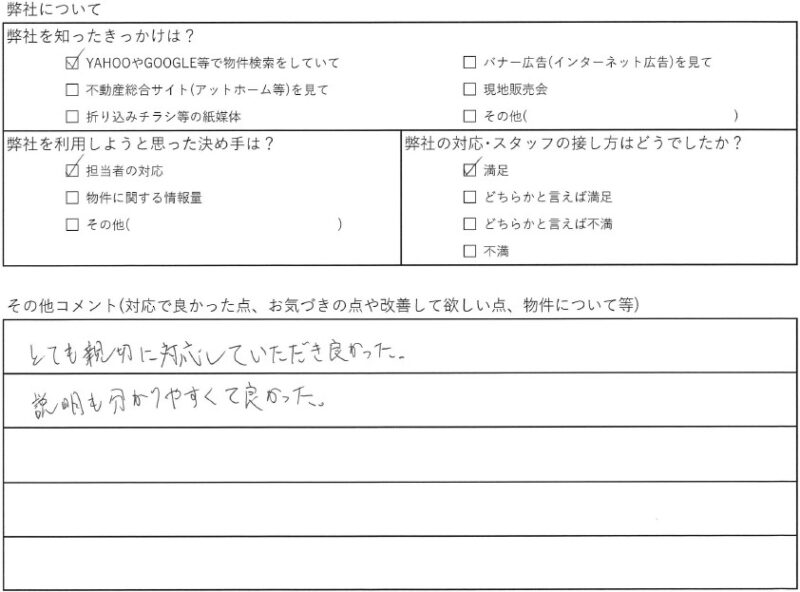 弊社について
弊社を知ったきっかけは？
☑ YAHOOやGOOGLE等で物件検索をしていて
□ バナー広告(インターネット広告)を見て
□ 不動産総合サイト(アットホーム等)を見て
□ 現地販売会
□ 折り込みチラシ等の紙媒体
□ その他( )
弊社を利用しようと思った決め手は？
☑ 担当者の対応
□ 物件に関する情報量
□ その他( )
弊社の対応・スタッフの接し方はどうでしたか？
☑ 満足
□ どちらかと言えば満足
□ どちらかと言えば不満
□ 不満
その他コメント(対応で良かった点、お気づきの点や改善して欲しい点、物件について等)
とても親切に対応していただき良かった。
説明も分かりやすくて良かった。